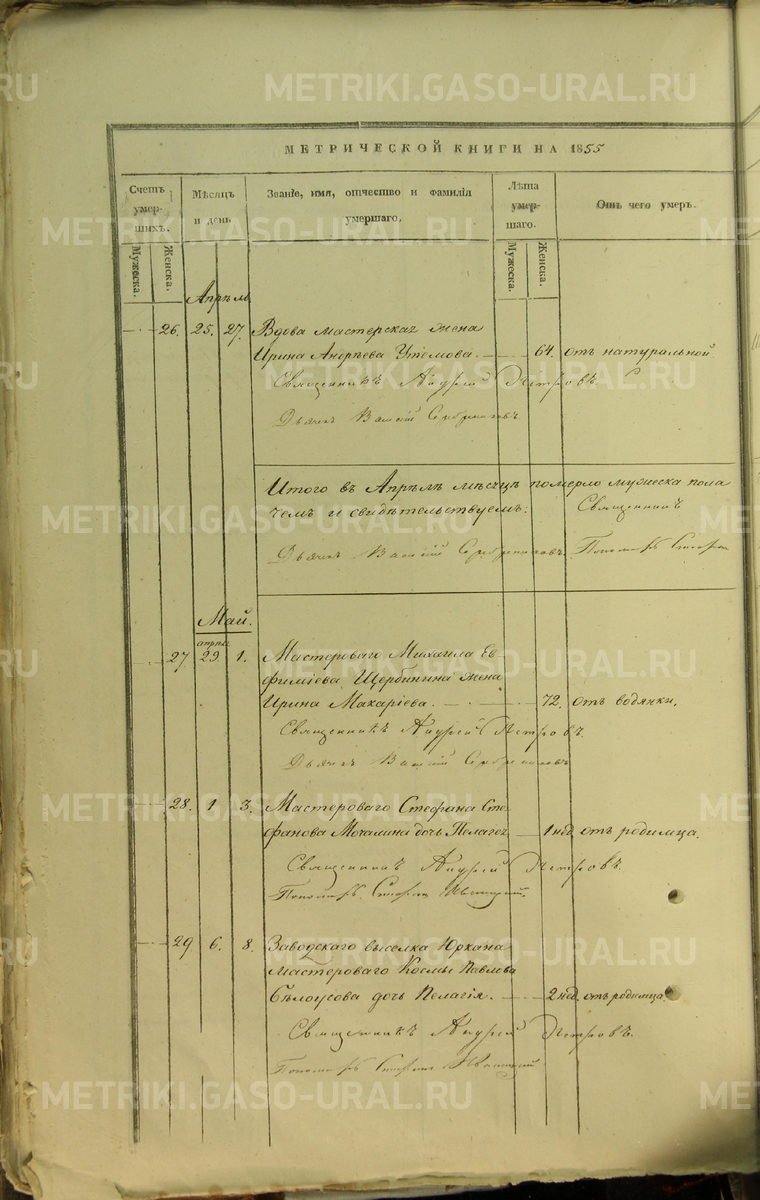 МЕТРИЧЕСКОЙ КНИГИ НА 1855
Счетъ умер-шихъ.
Мѣсяцъ и день
Званіе, имя, отчество и фамилія умершаго.
Лѣта умер-шаго.
Отъ чего умеръ.
Мужеска. Женска.
Мужеска. Женска.
Апрѣль
26. 25. 27. Вдова мастерская жена
Ирина Андрѣева Утемова. 64. отъ натуральной
Священникъ Андрей Петровъ.
Дьячекъ
Итого въ Апрѣлѣ мѣсяцѣ померло мужеска пола
чемъ и свидѣтельствуемъ: Священникъ
Дьячекъ Пономарь
Май.
апрѣля
27 29. 1. Мастероваго Михаила Ев-
фиміева Щербинина жена
Ирина Макаріева. 72. отъ водянки.
Священникъ Андрей Петровъ.
Дьячекъ
28. 1 3. Мастероваго Стефана Сте-
фанова Мочалина дочь Пелагея 1 нед. отъ родимца.
Священникъ Андрей Петровъ.
Пономарь
29 6. 8. Заводскаго выселка Юркана
мастероваго Космы Павлова
Бѣлоусова дочь Пелагія. 2 нед. отъ родимца
Священникъ Андрей Петровъ.
Пономарь
METRIKI.GASO-URAL.RU